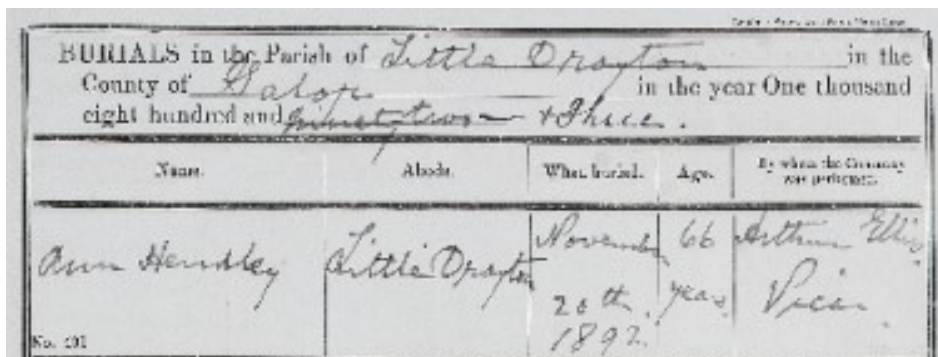 BURIALS in the Parish of Little Drayton in the
County of Salop in the year One thousand
eight hundred and ninety two & Three.
Name. Abode. When buried. Age. By whom the Ceremony was performed.
Ann Hendley Little Drayton November 20th 1892. 66 years Arthur Ellis. Vicar.
No. 491